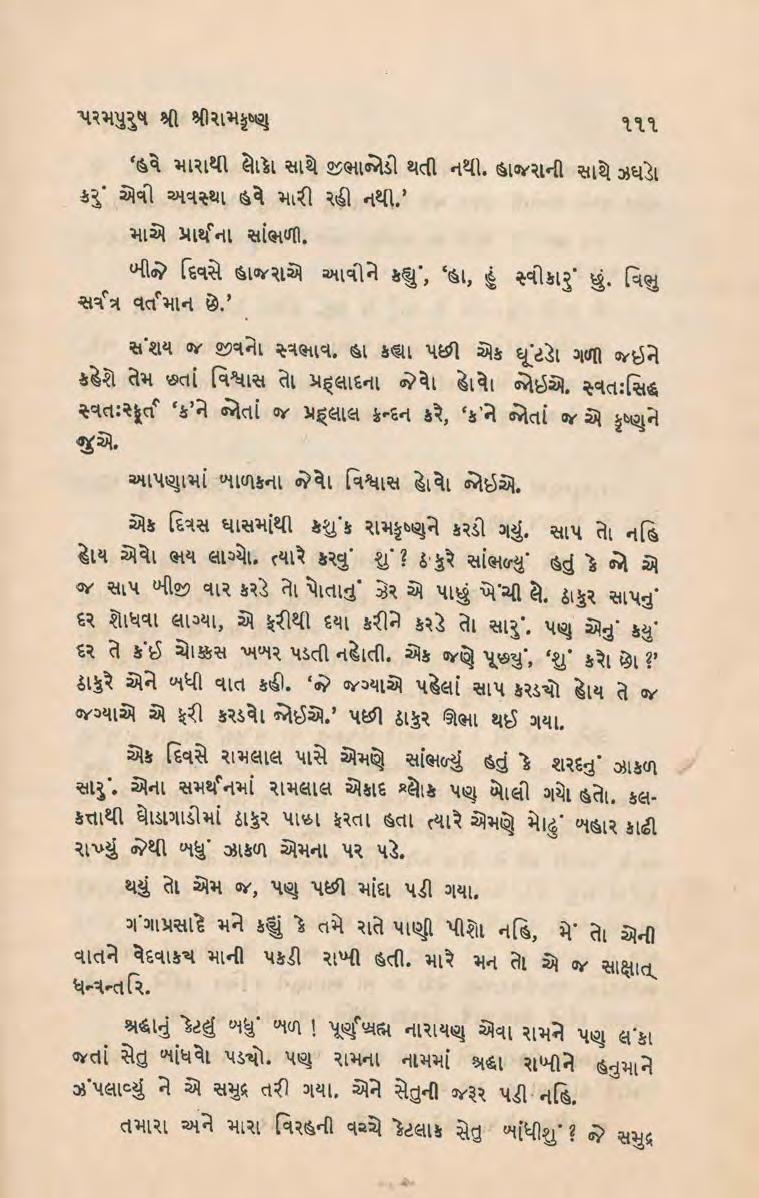 પરમપુરુષ શ્રી શ્રીરામકૃષ્ણ ૧૧૧
‘હવે મારાથી લોકો સાથે જીભાજોડી થતી નથી. હાજરાની સાથે ઝઘડો
કરું એવી અવસ્થા હવે મારી રહી નથી.’
માએ પ્રાર્થના સાંભળી.
બીજે દિવસે હાજરાએ આવીને કહ્યું, ‘હા, હું સ્વીકારું છું. વિભુ
સર્વત્ર વર્તમાન છે.’
સંશય જ જીવનો સ્વભાવ. હા કહ્યા પછી એક ઘૂંટડો ગળી જઈને
કહેશે તેમ છતાં વિશ્વાસ તો પ્રહ્‌લાદના જેવો હોવો જોઈએ. સ્વતઃસિદ્ધ
સ્વતઃસ્ફૂર્ત ‘ક’ને જોતાં જ પ્રહ્‌લાલ ક્રન્દન કરે, ‘ક’ને જોતાં જ એ કૃષ્ણને
જુએ.
આપણામાં બાળકના જેવો વિશ્વાસ હોવો જોઈએ.
એક દિવસ ઘાસમાંથી કશુંક રામકૃષ્ણને કરડી ગયું. સાપ તો નહિ
હોય એવો ભય લાગ્યો. ત્યારે કરવું શું? ઠાકુરે સાંભળ્યું હતું કે જો એ
જ સાપ બીજી વાર કરડે તો પોતાનું ઝેર એ પાછું ખેંચી લે. ઠાકુર સાપનું
દર શોધવા લાગ્યા, એ ફરીથી દયા કરીને કરડે તો સારું. પણ એનું કયું
દર તે કંઈ ચોક્કસ ખબર પડતી નહોતી. એક જણે પૂછ્યું, ‘શું કરો છો ?’
ઠાકુરે એને બધી વાત કહી. ‘જે જગ્યાએ પહેલાં સાપ કરડ્યો હોય તે જ
જગ્યાએ એ ફરી કરડવો જોઈએ.’ પછી ઠાકુર ઊભા થઈ ગયા.
એક દિવસે રામલાલ પાસે એમણે સાંભળ્યું હતું કે શરદનું ઝાકળ
સારું. એના સમર્થનમાં રામલાલ એકાદ શ્લોક પણ બોલી ગયો હતો. કલ-
કત્તાથી ઘોડાગાડીમાં ઠાકુર પાછા ફરતા હતા ત્યારે એમણે મોઢું બહાર કાઢી
રાખ્યું જેથી બધું ઝાકળ એમના પર પડે.
થયું તો એમ જ, પણ પછી માંદા પડી ગયા.
ગંગાપ્રસાદે મને કહ્યું કે તમે રાતે પાણી પીશો નહિ, મેં તો એની
વાતને વેદવાક્ય માની પકડી રાખી હતી. મારે મન તો એ જ સાક્ષાત્
ધન્વન્તરિ.
શ્રદ્ધાનું કેટલું બધું બળ ! પૂર્ણબ્રહ્મ નારાયણ એવા રામને પણ લંકા
જતાં સેતુ બાંધવો પડ્યો. પણ રામના નામમાં શ્રદ્ધા રાખીને હનુમાને
ઝંપલાવ્યું ને એ સમુદ્ર તરી ગયા. એને સેતુની જરૂર પડી નહિ.
તમારા અને મારા વિરહની વચ્ચે કેટલાક સેતુ બાંધીશું? જે સમુદ્ર